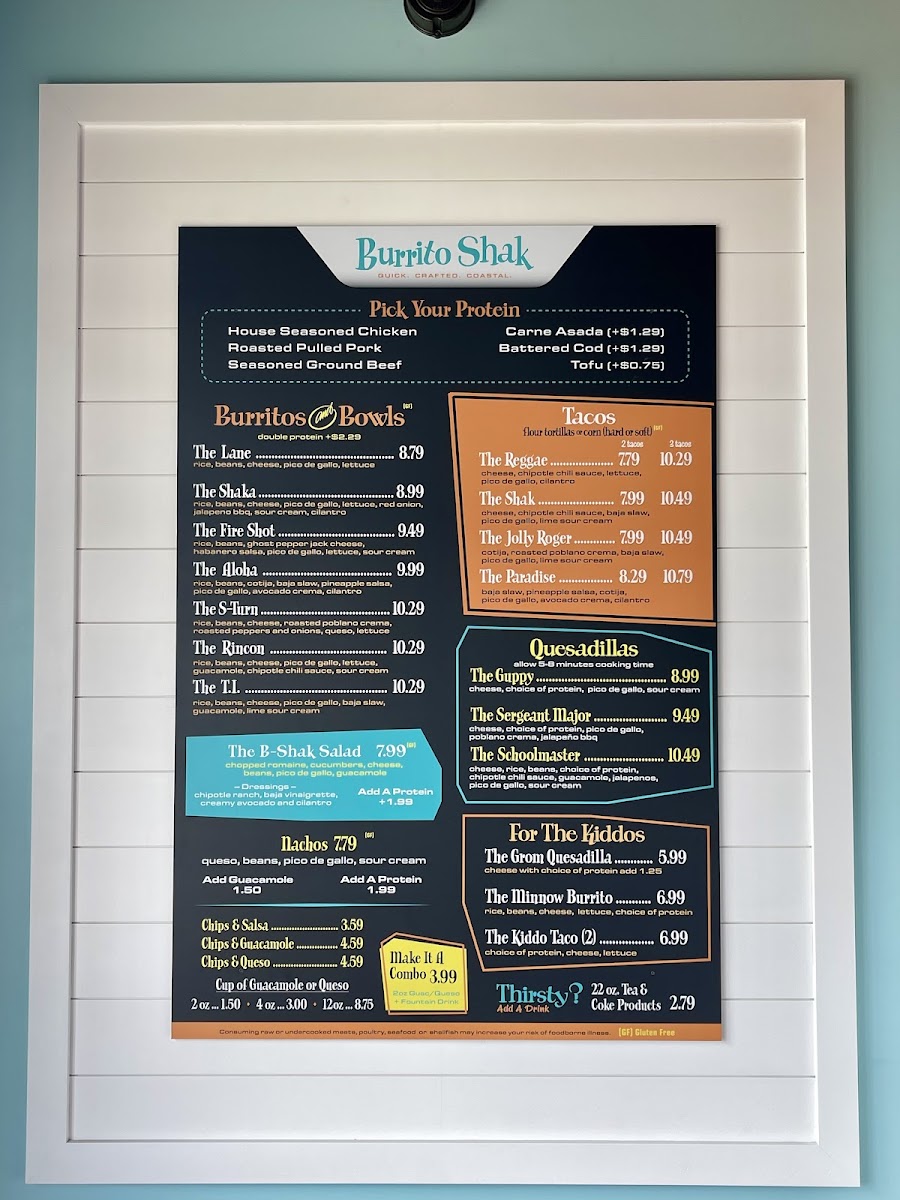 Burrito Shak
QUICK. CRAFTED. COASTAL.
Pick Your Protein
House Seasoned Chicken
Roasted Pulled Pork
Seasoned Ground Beef
Carne Asada (+$1.29)
Battered Cod (+$1.29)
Tofu (+$0.75)
Burritos and Bowls [GF]
double protein +$2.29
The Lane ........ 8.79
rice, beans, cheese, pico de gallo, lettuce
The Shaka ........ 8.99
rice, beans, cheese, pico de gallo, lettuce, red onion,
jalapeno bbq, sour cream, cilantro
The Fire Shot ........ 9.49
rice, beans, ghost pepper jack cheese,
habanero salsa, pico de gallo, lettuce, sour cream
The Aloha ........ 9.99
rice, beans, cotija, baja slaw, pineapple salsa,
pico de gallo, avocado crema, cilantro
The S-Turn ........ 10.29
rice, beans, cheese, roasted poblano crema,
roasted peppers and onions, queso, lettuce
The Rincon ........ 10.29
rice, beans, cheese, pico de gallo, lettuce,
guacamole, chipotle chili sauce, sour cream
The T.I. ........ 10.29
rice, beans, cheese, pico de gallo, baja slaw,
guacamole, lime sour cream
The B-Shak Salad 7.99 [GF]
chopped romaine, cucumbers, cheese,
beans, pico de gallo, guacamole
– Dressings –
chipotle ranch, baja vinaigrette,
creamy avocado and cilantro
Add A Protein
+1.99
Nachos 7.79 [GF]
queso, beans, pico de gallo, sour cream
Add Guacamole
1.50
Add A Protein
1.99
Chips & Salsa ........ 3.59
Chips & Guacamole ........ 4.59
Chips & Queso ........ 4.59
Cup of Guacamole or Queso
2 oz ... 1.50 • 4 oz ... 3.00 • 12oz ... 8.75
Make It A
Combo 3.99
2oz Guac/Queso
+ Fountain Drink
Tacos
flour tortillas or corn (hard or soft) [GF]
2 tacos 3 tacos
The Reggae ........ 7.79 10.29
cheese, chipotle chili sauce, lettuce,
pico de gallo, cilantro
The Shak ........ 7.99 10.49
cheese, chipotle chili sauce, baja slaw,
pico de gallo, lime sour cream
The Jolly Roger ........ 7.99 10.49
cotija, roasted poblano crema, baja slaw,
pico de gallo, lime sour cream
The Paradise ........ 8.29 10.79
baja slaw, pineapple salsa, cotija,
pico de gallo, avocado crema, cilantro
Quesadillas
allow 5-8 minutes cooking time
The Guppy ........ 8.99
cheese, choice of protein, pico de gallo, sour cream
The Sergeant Major ........ 9.49
cheese, choice of protein, pico de gallo,
poblano crema, jalapeño bbq
The Schoolmaster ........ 10.49
cheese, rice, beans, choice of protein,
chipotle chili sauce, guacamole, jalapenos,
pico de gallo, sour cream
For The Kiddos
The Grom Quesadilla ........ 5.99
cheese with choice of protein add 1.25
The Minnow Burrito ........ 6.99
rice, beans, cheese, lettuce, choice of protein
The Kiddo Taco (2) ........ 6.99
choice of protein, cheese, lettuce
Thirsty?
Add A Drink
22 oz. Tea &
Coke Products 2.79
Consuming raw or undercooked meats, poultry, seafood or shellfish may increase your risk of foodborne illness. [GF] Gluten Free